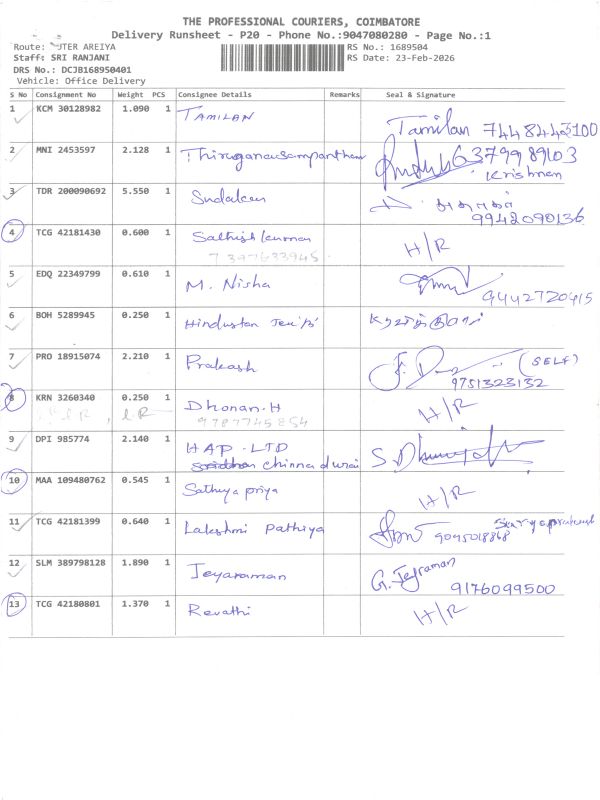 THE PROFESSIONAL COURIERS, COIMBATORE
Delivery Runsheet - P20 - Phone No.:9047080280 - Page No.:1
Route: UTER AREIYA RS No.: 1689504
Staff: SRI RANJANI RS Date: 23-Feb-2026
DRS No.: DCJB168950401
Vehicle: Office Delivery
S No Consignment No Weight PCS Consignee Details Remarks Seal & Signature
1 KCM 30128982 1.090 1 TAMILAN Tamilan 7448443100
2 MNI 2453597 2.128 1 6379989103
Krishnan
3 TDR 200090692 5.550 1 Sudakar
9942090136
4 TCG 42181430 0.600 1 Sathish kumar H/R
7397633945
5 EDQ 22349799 0.610 1 M. Nisha
9442720415
6 BOH 5289945 0.250 1 Hindustan
7 PRO 18915074 2.210 1 Prakash (SELF)
9751323132
8 KRN 3260340 0.250 1 Dhonan.H H/R
9787745854
9 DPI 985774 2.140 1 HAP.LTD
chinna durai
10 MAA 109480762 0.545 1 Sathiya priya H/R
11 TCG 42181399 0.640 1 Lakshmi Pathiya
9045018868
12 SLM 389798128 1.890 1 Jeyaraman G. Jeyraman
9176099500
13 TCG 42180801 1.370 1 Revathi H/R